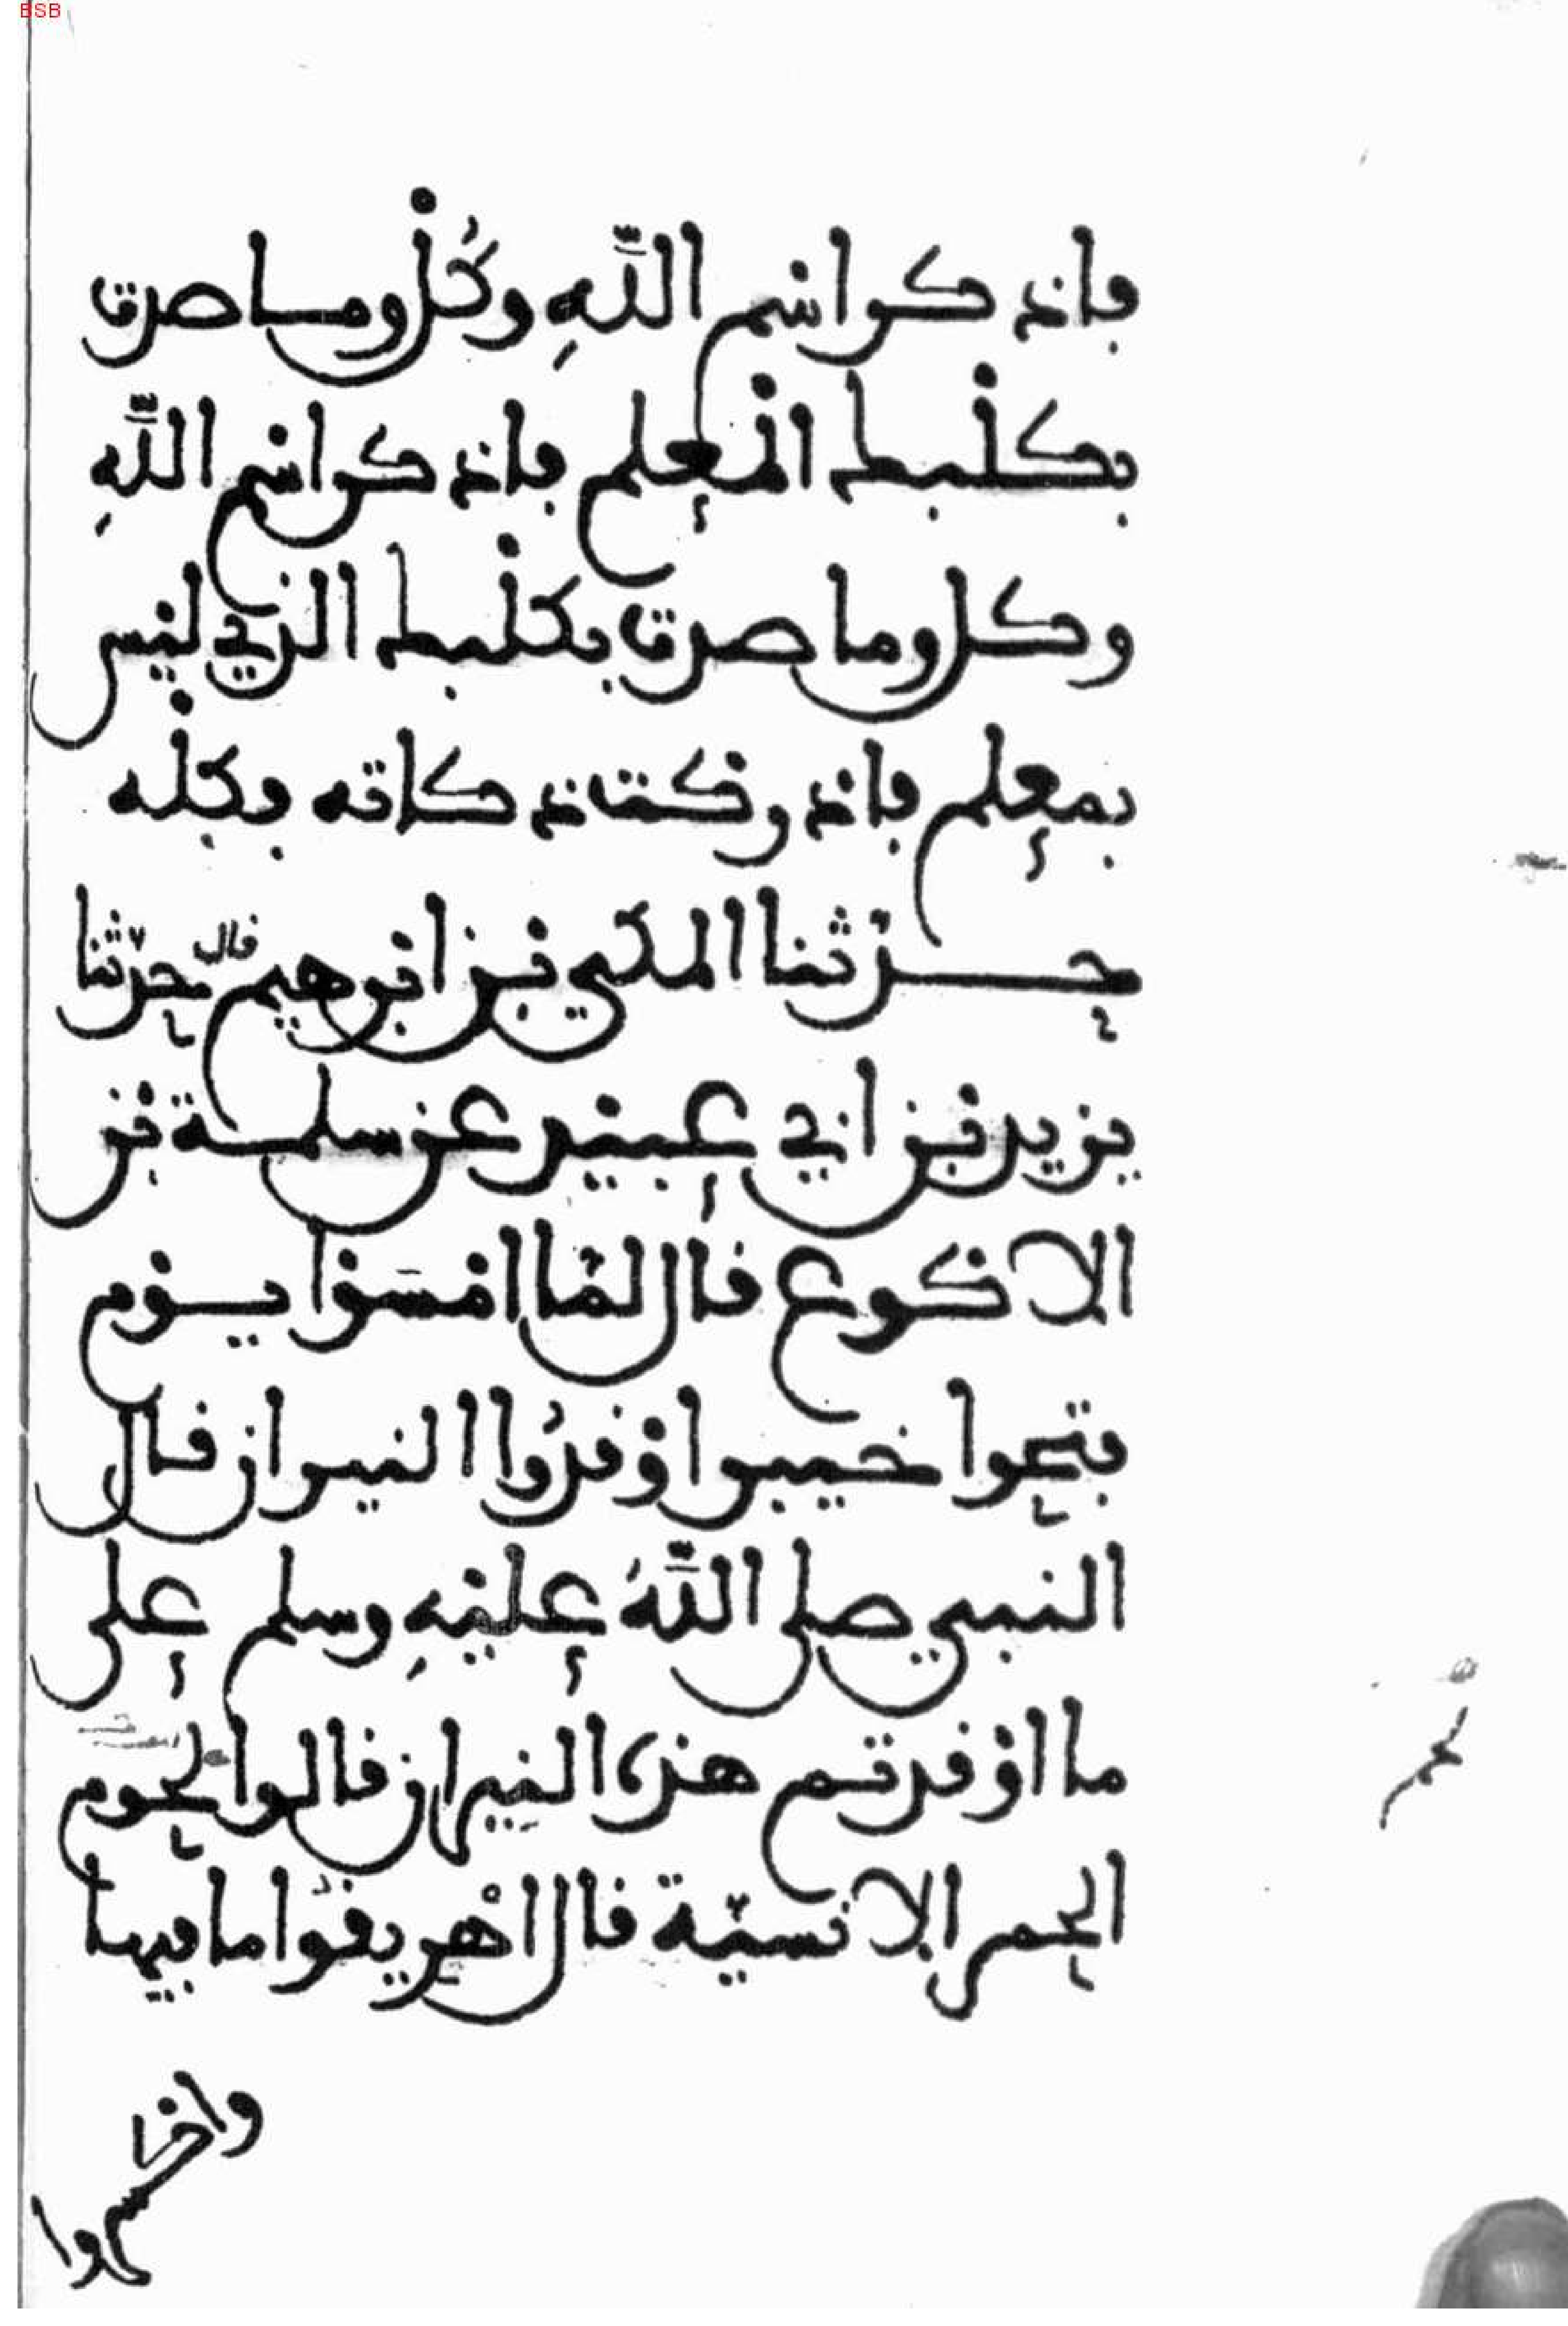 BSB
فاذكروا اسم اللّهِ وكُلْ وما صدت
بكلْبك الْمعلم فاذكروا اسم اللّهِ
وكل وما صدت بكلْبك الذي ليْس
بمعلم فادركت ذكاته فكلْه
حدّثنا المكي بْن ابْرهيم قال حدّثنا
يزيد بْن ابي عبيْد عن سلمة بْن
الاكوع قال لمّا امْسَوْا يوْم
فتحوا خيبر اوْقدُوا النيران قال
النبي صلى اللّهُ عليْهِ وسلم على
ما اوْقدتم هذه النيران قالوا لحوم
الحمر الانسيّة قال اهْريقوا ما فيها
واكْسروا
لحمر